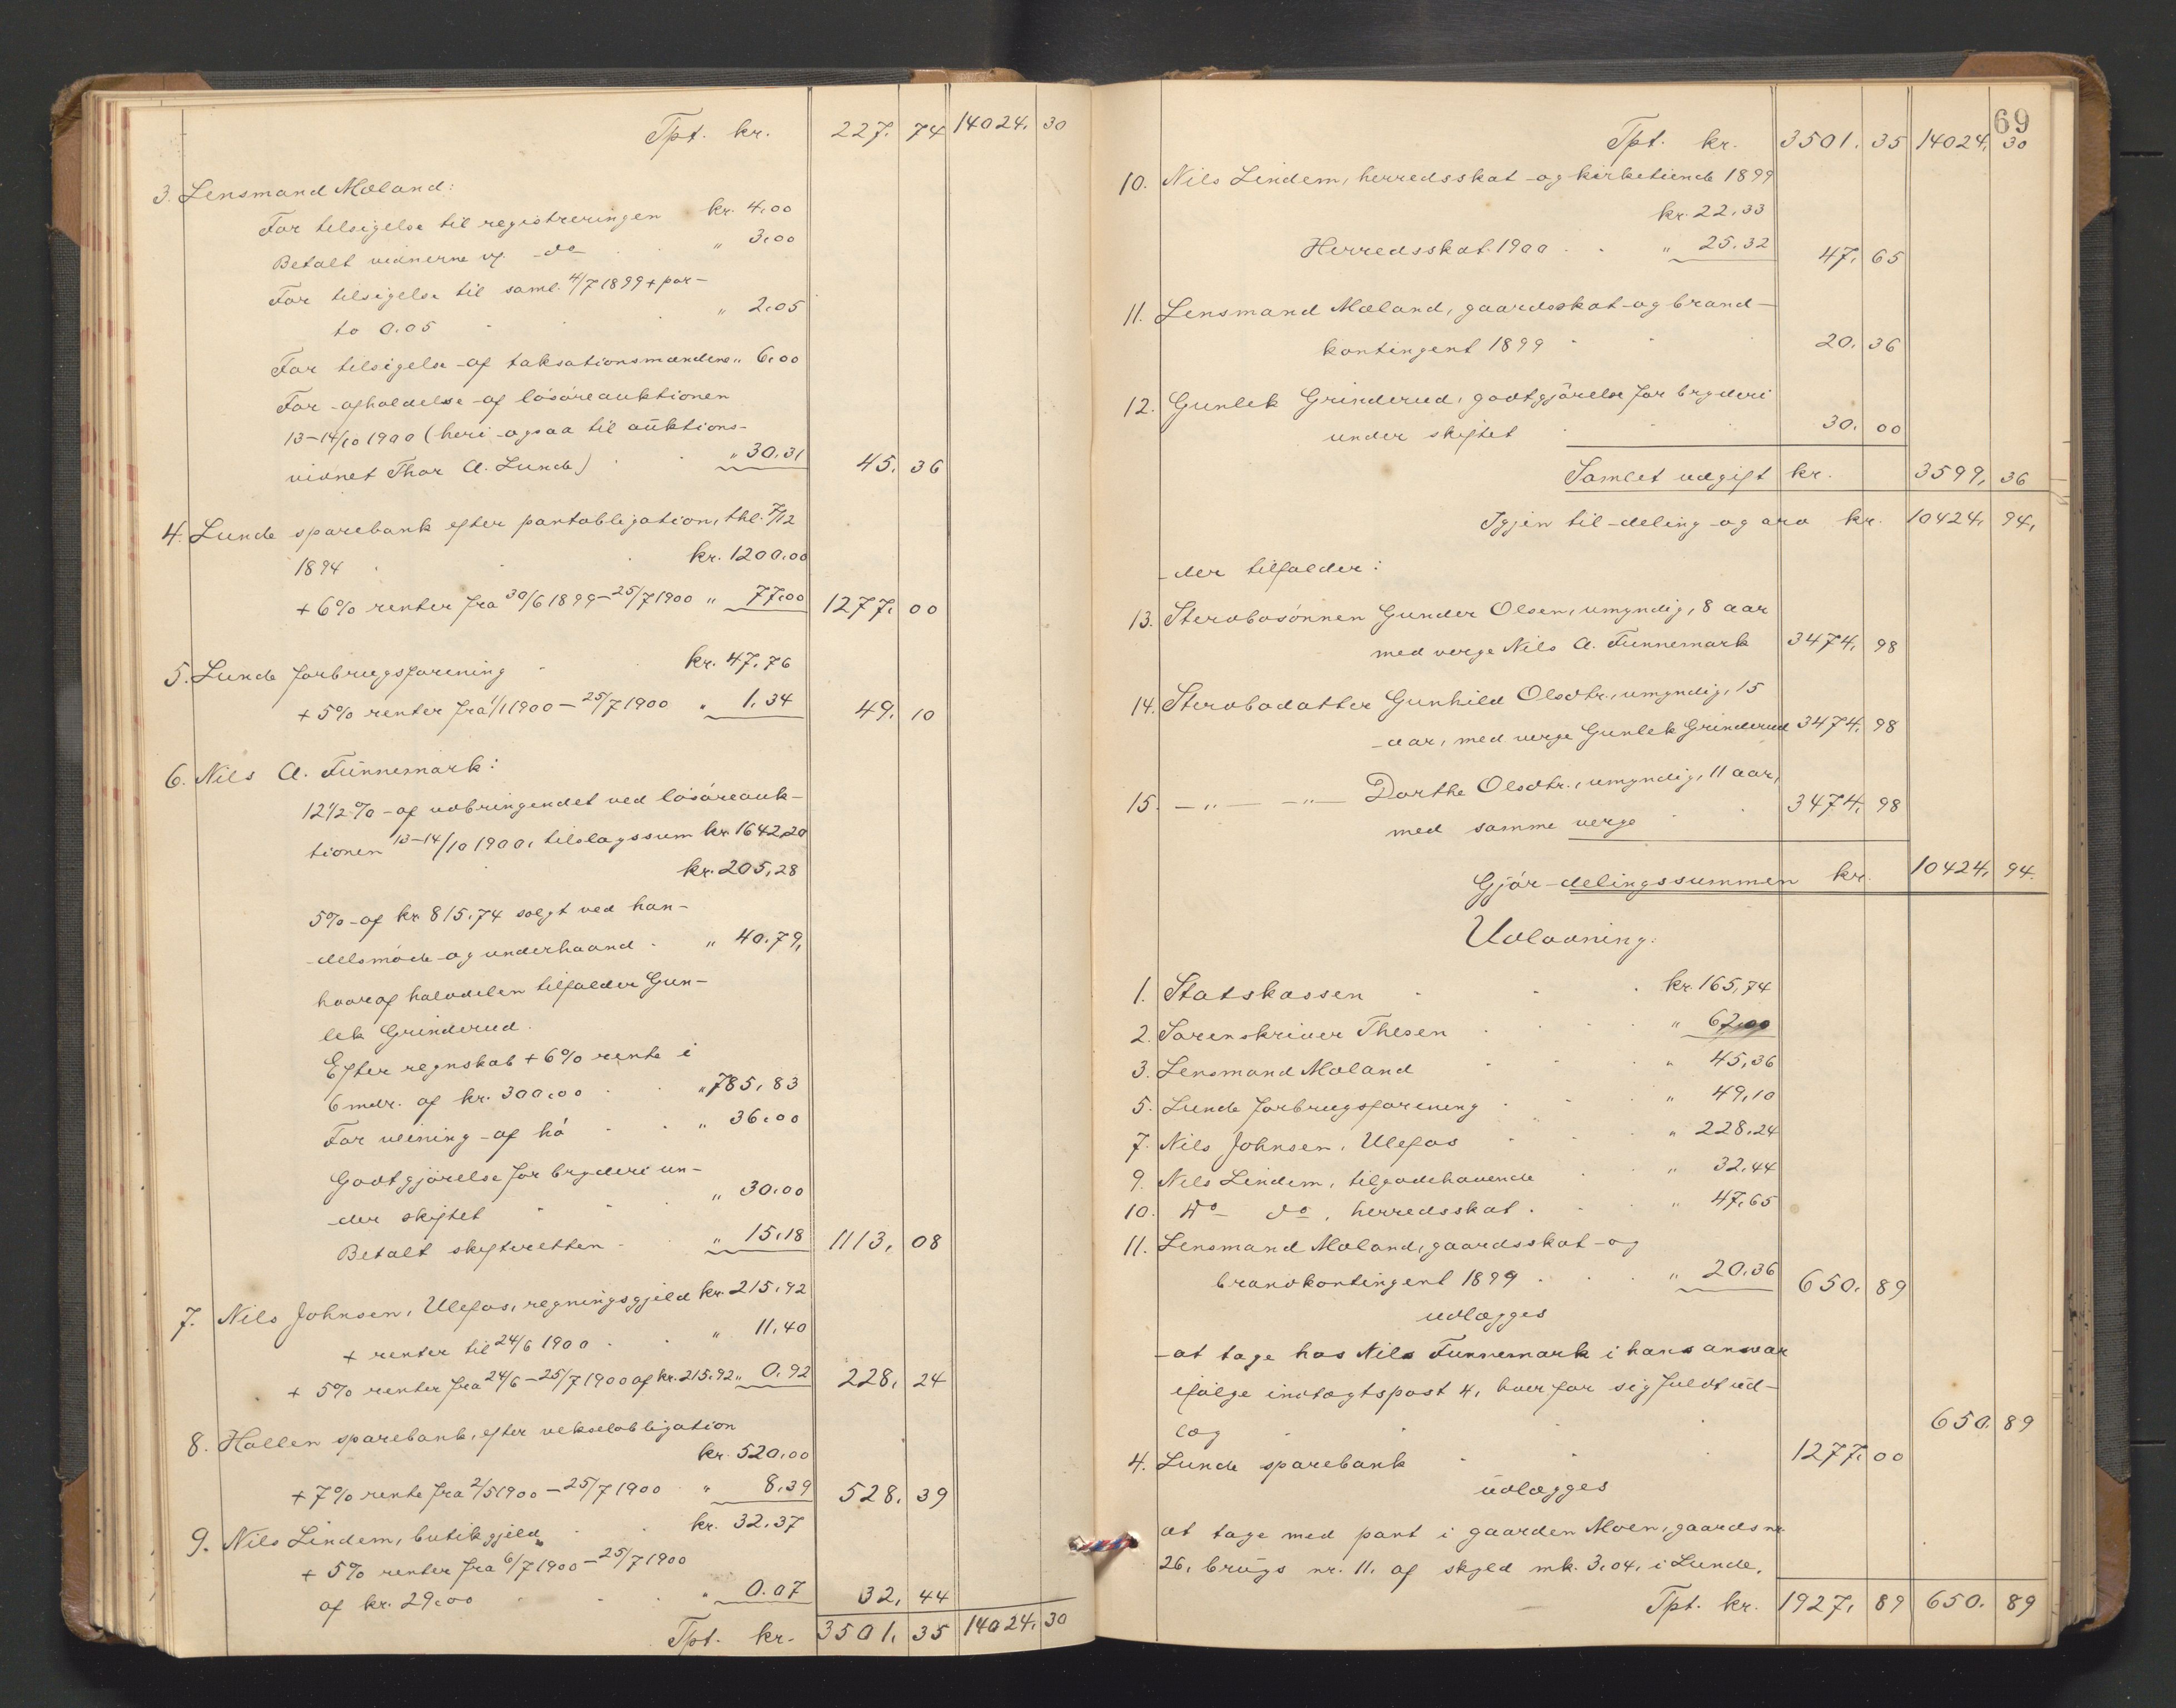 Tpt. kr. 227. 74 14024. 30
3. Lensmand Moland:
For tilsigelse til registreringen kr. 4.00
Betalt vidnerne v. do " 3.00
For tilsigelse til saml. 4/7 1899 + por-
to 0.05 " 2.05
For tilsigelse af taksationsmændene " 6.00
For afholdelse af løsøreauktionen
13-14/10 1900 (heri ogsaa til auktions-
vidnet Thor A. Lunde) " 30.31 45. 36
4. Lunde sparebank efter pantobligation, thl. 7/12
1894 kr. 1200.00
+ 6% renter fra 30/6 1899 - 25/7 1900 " 77.00 1277. 00
5. Lunde forbrugsforening kr. 47.76
+ 5% renter fra 1/1 1900 - 25/7 1900 " 1.34 49. 10
6. Nils A. Funnemark:
12 1/2 % af udbringendet ved løsøreauk-
tionen 13-14/10 1900, tilslagssum kr. 1642.20
kr. 205.28
5% af kr. 815.74 solgt ved han-
delsmøde og underhaand " 40.79,
hvoraf halvdelen tilfalder Gun-
lek Grinderud.
Efter regnskab + 6% rente i
6 mdr. af kr. 300.00 " 785.83
For veining af hø " 36.00
Godtgjørelse for bryderi un-
der skiftet " 30.00
Betalt skifteretten " 15.18 1113. 08
7. Nils Johnsen, Ulefos, regningsgjeld kr. 215.92
+ renter til 24/6 1900 " 11.40
+ 5% renter fra 24/6 - 25/7 1900 af kr. 215.92 " 0.92 228. 24
8. Hollen sparebank, efter vekselobligation
kr. 520.00
+ 7% rente fra 2/5 1900 - 25/7 1900 " 8.39 528. 39
9. Nils Lindem, butikgjeld kr. 32.37
+ 5% renter fra 6/7 1900 - 25/7 1900
af kr. 29.00 " 0.07 32. 44
Tpt. kr. 3501. 35 14024. 30
69
Tpt. kr. 3501. 35 14024. 30
10. Nils Lindem, herredsskat og kirketiende 1899
kr. 22.33
Herredsskat 1900 " 25.32 47. 65
11. Lensmand Moland, gaardsskat og brand-
kontingent 1899 20. 36
12. Gunlek Grinderud, godtgjørelse for bryderi
under skiftet 30. 00
Samlet udgift kr. 3599. 36
Igjen til deling og arv kr. 10424. 94,
der tilfalder:
13. Stervbosønnen Gunder Olsen, umyndig, 8 aar
med verge Nils A. Funnemark 3474. 98
14. Stervbodatter Gunhild Olsdtr., umyndig, 15
aar, med verge Gunlek Grinderud 3474. 98
15. - " - - " - Dorthe Olsdtr., umyndig, 11 aar,
med samme verge 3474. 98
Gjør delingssummen kr. 10424. 94.
Udlodning:
1. Statskassen kr. 165.74
2. Sorenskriver Thesen " 62.00
3. Lensmand Moland " 45.36
5. Lunde forbrugsforening " 49.10
7. Nils Johnsen, Ulefos " 228.24
9. Nils Lindem, tilgodehavende " 32.44
10. Do do, herredsskat " 47.65
11. Lensmand Moland, gaardsskat og
brandkontingent 1899 " 20.36 650. 89
udlægges
at tage hos Nils Funnemark i hans ansvar
ifølge indtægtspost 4, hver for sig fuldt ud-
læg 650. 89
4. Lunde sparebank 1277. 00
udlægges
at tage med pant i gaarden Moen, gaards nr.
26, brugs nr. 11, af skyld mk. 3.04, i Lunde.
Tpt. kr. 1927. 89 650. 89